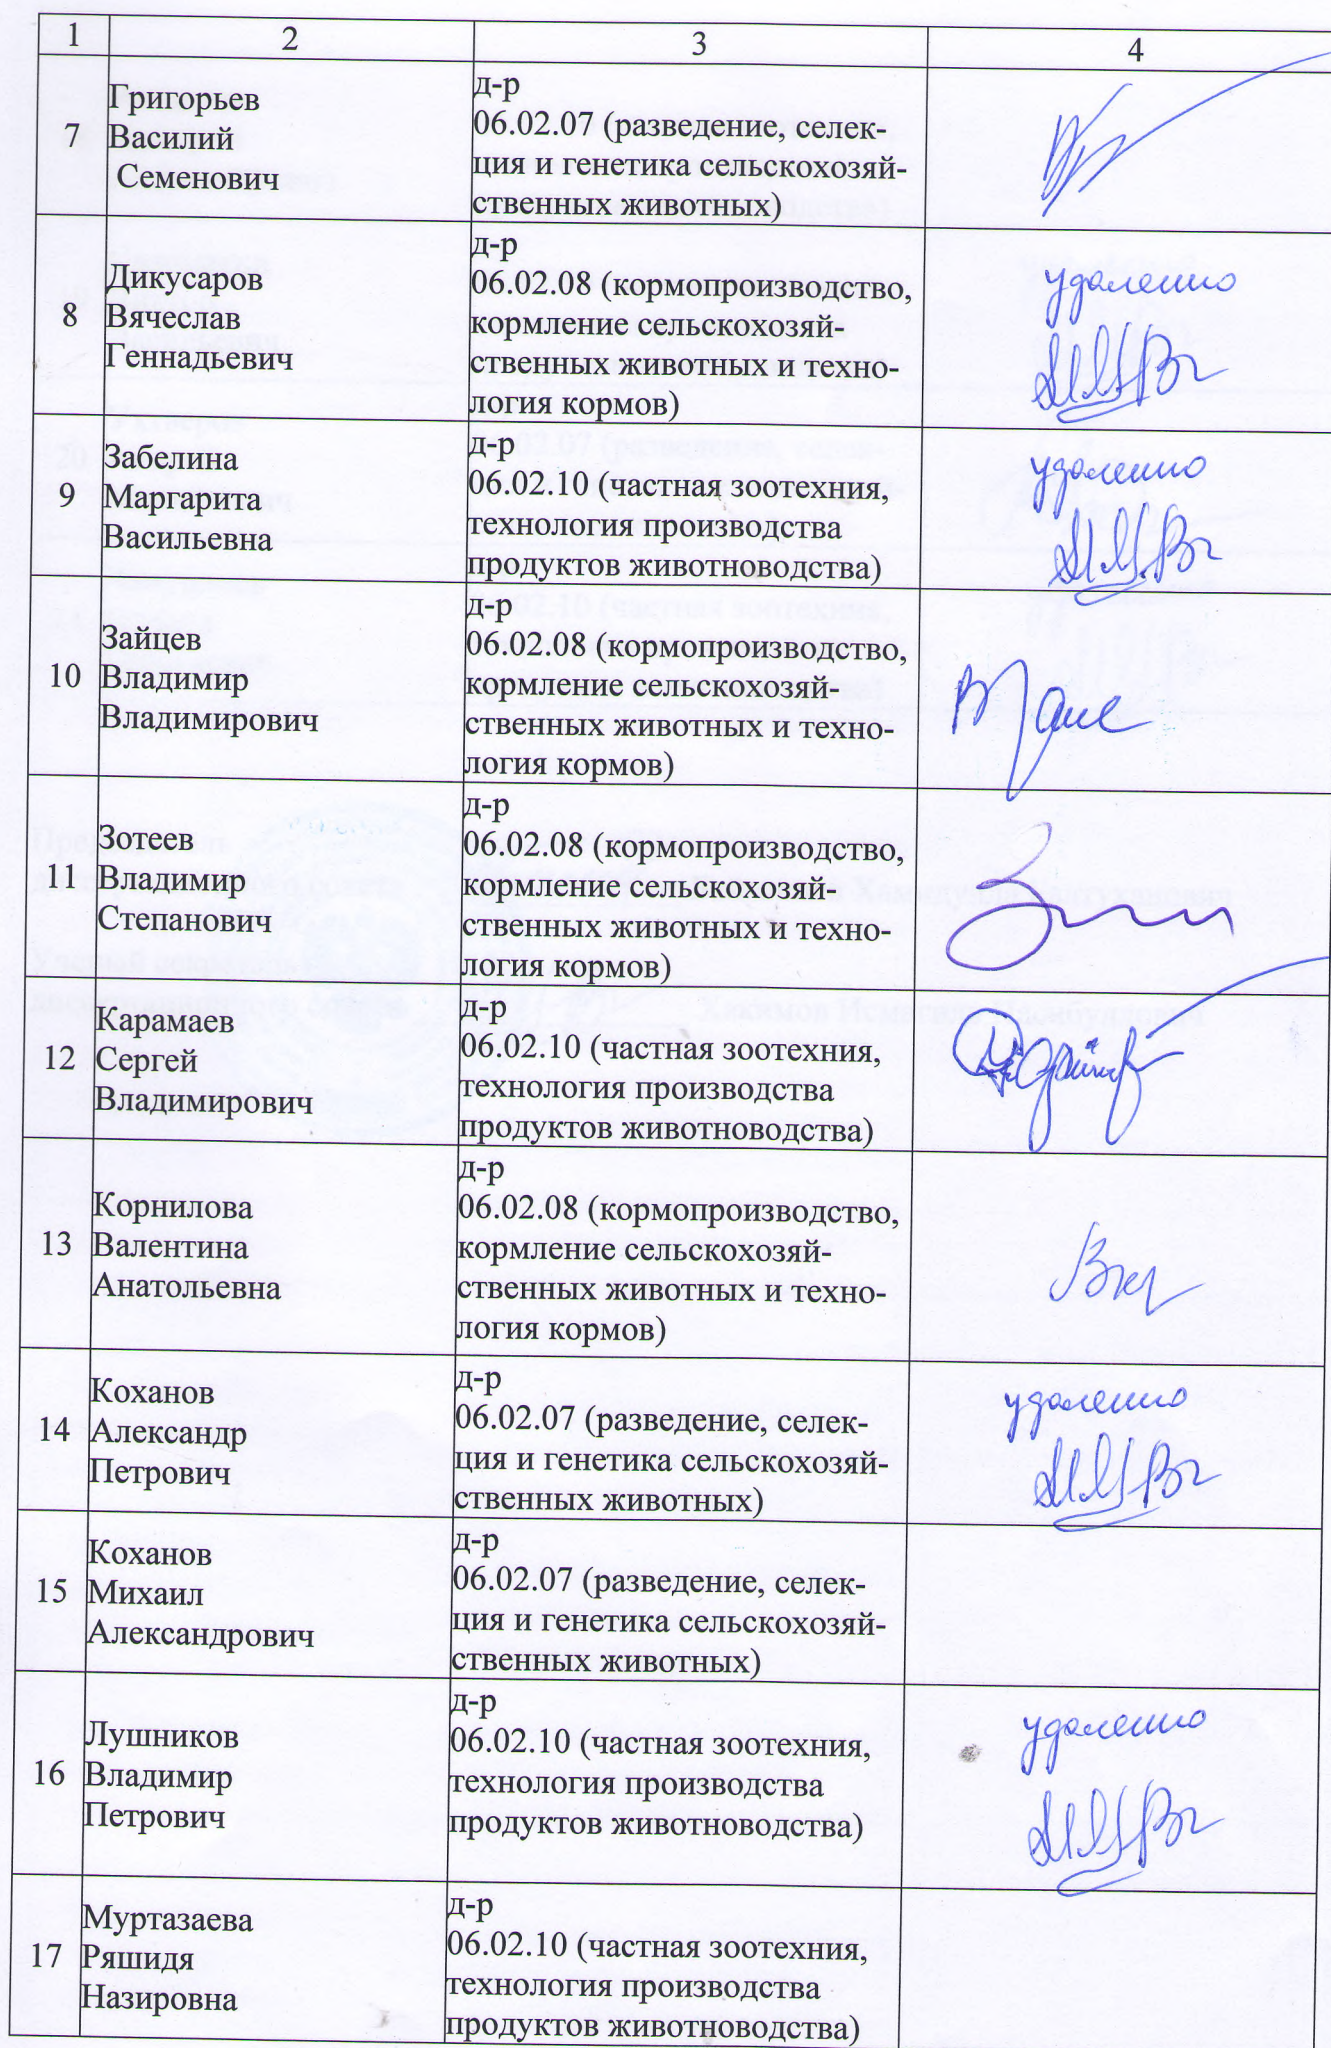 1 2 3 4
7
Григорьев
Василий
Семенович
д-р
06.02.07 (разведение, селек-
ция и генетика сельскохозяй-
ственных животных)
8
Дикусаров
Вячеслав
Геннадьевич
д-р
06.02.08 (кормопроизводство,
кормление сельскохозяй-
ственных животных и техно-
логия кормов)
удаленно
9
Забелина
Маргарита
Васильевна
д-р
06.02.10 (частная зоотехния,
технология производства
продуктов животноводства)
удаленно
10
Зайцев
Владимир
Владимирович
д-р
06.02.08 (кормопроизводство,
кормление сельскохозяй-
ственных животных и техно-
логия кормов)
11
Зотеев
Владимир
Степанович
д-р
06.02.08 (кормопроизводство,
кормление сельскохозяй-
ственных животных и техно-
логия кормов)
12
Карамаев
Сергей
Владимирович
д-р
06.02.10 (частная зоотехния,
технология производства
продуктов животноводства)
13
Корнилова
Валентина
Анатольевна
д-р
06.02.08 (кормопроизводство,
кормление сельскохозяй-
ственных животных и техно-
логия кормов)
14
Коханов
Александр
Петрович
д-р
06.02.07 (разведение, селек-
ция и генетика сельскохозяй-
ственных животных)
удаленно
15
Коханов
Михаил
Александрович
д-р
06.02.07 (разведение, селек-
ция и генетика сельскохозяй-
ственных животных)
16
Лушников
Владимир
Петрович
д-р
06.02.10 (частная зоотехния,
технология производства
продуктов животноводства)
удаленно
17
Муртазаева
Ряшидя
Назировна
д-р
06.02.10 (частная зоотехния,
технология производства
продуктов животноводства)